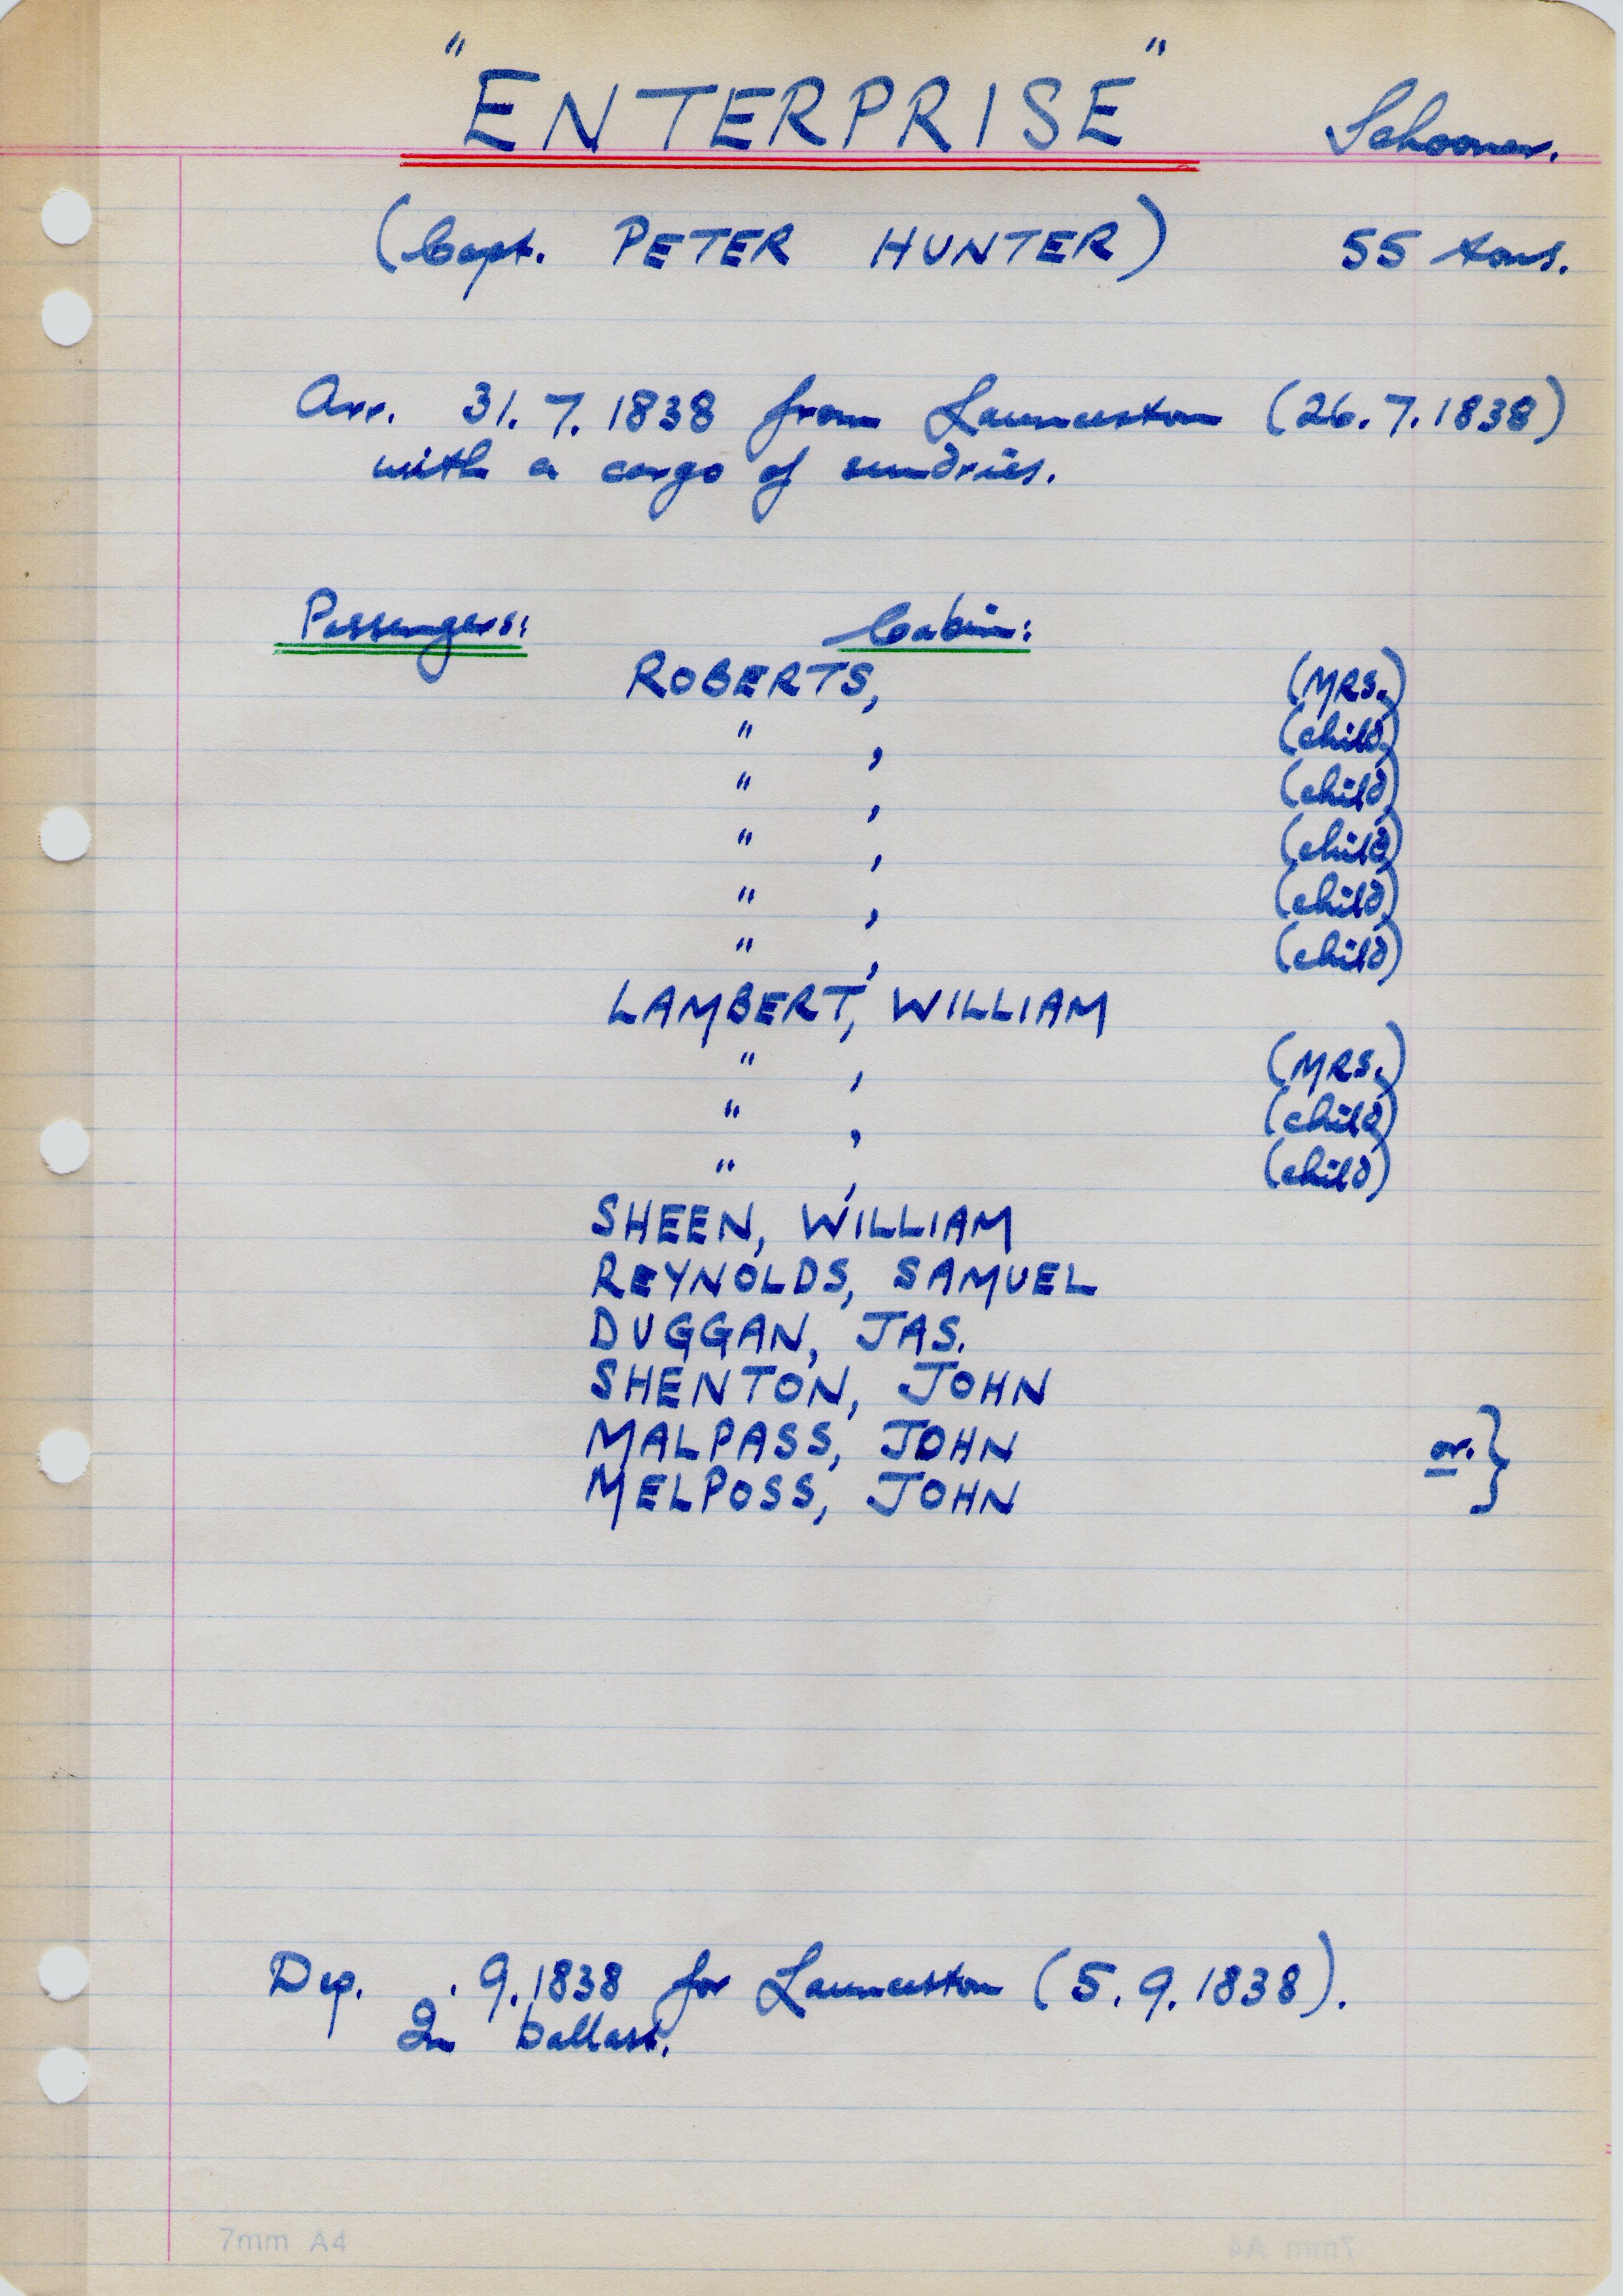 "ENTERPRISE" Schooner.
(Capt. PETER HUNTER) 55 tons.
Arr. 31.7.1838 from Launceston (26.7.1838)
with a cargo of sundries.
Passengers: Cabin:
ROBERTS, (MRS.)
" , (child)
" , (child)
" , (child)
" , (child)
" , (child)
LAMBERT, WILLIAM
" , (MRS.)
" , (child)
" , (child)
SHEEN, WILLIAM
REYNOLDS, SAMUEL
DUGGAN, JAS.
SHENTON, JOHN
MALPASS, JOHN or. }
MELPOSS, JOHN
Dep. . 9.1838 for Launceston (5.9.1838).
In ballast.
7mm A4